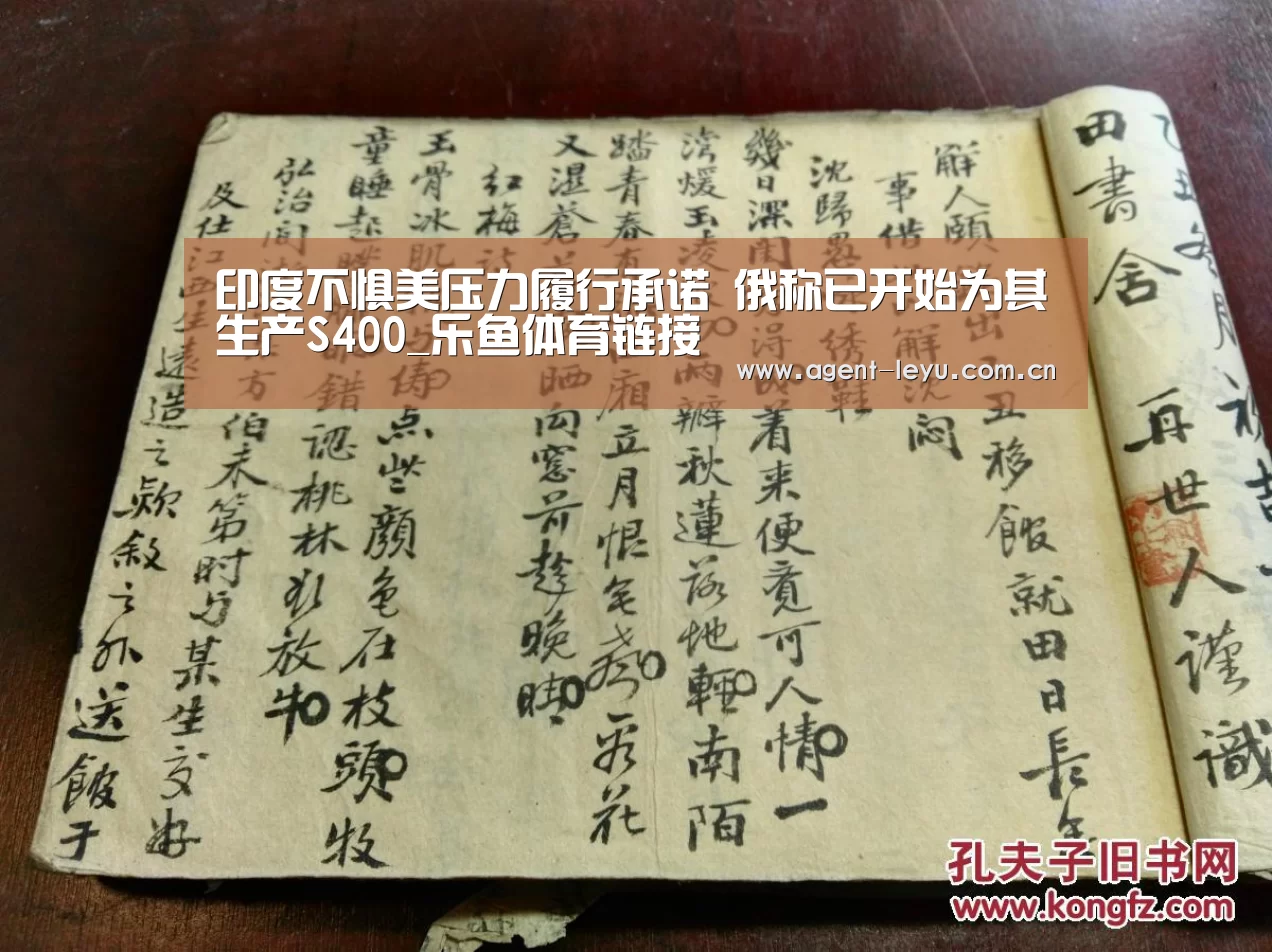 印度不惧美压力履行承诺 俄称已开始为其
生产S400_乐鱼体育链接
www.agent-leyu.com.cn
田書舍 再世人謹識
解人頤 出丑移館就田日長
事借 解沈悶
沈歸愚 绣鞋
幾日深閨 得 着来便竟可人情一
煖玉凌 两瓣秋蓮落地輕南陌
踏青春有 廂立月恨 花
又湿蒼 晒向窓前趁晚晴
红梅詩
玉骨冰肌 点些顔色在枝頭牧
童睡起 錯認桃林 放牛
弘治间 方伯未第时与某生交好
及仕江西 遠造之款敘之外送館于
孔夫子旧书网
www.kongfz.com